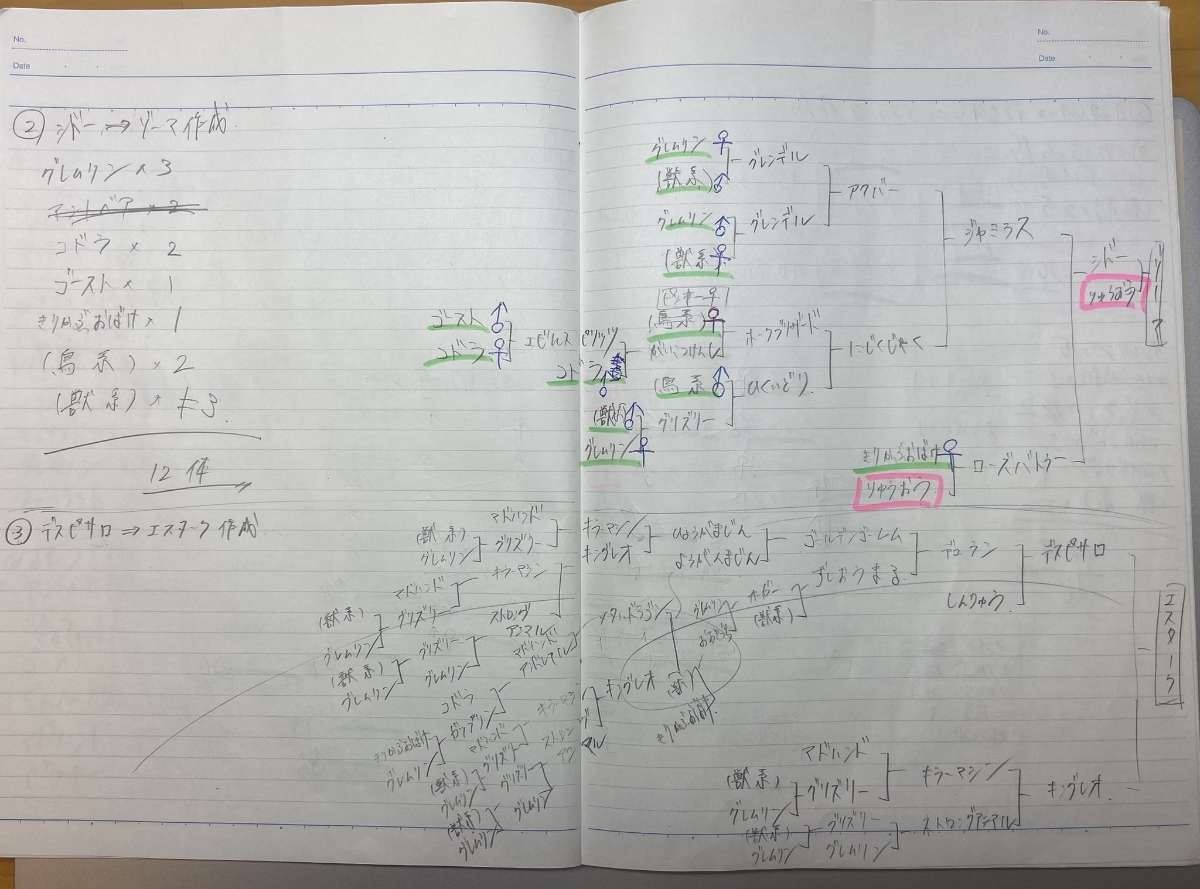 No.
Date
② シドー ⇒ ゾーマ作成
グレムリン × 3
コドラ × 2
ゴースト × 1
きりかぶおばけ × 1
(鳥系) × 2
(獣系) × 3
12体
③ デスピサロ ⇒ エスターク作成
No.
Date
グレムリン ♀
(獣系) ♂
グレンデル
グレムリン ♂
(獣系) ♀
グレンデル
アクバー
ゴースト ♂
コドラ ♀
エビルスピリッツ
コドラ ♂
(鳥系) ♀
がいこつけんし
ホークブリザード
(鳥系) ♂
(獣系) ♂
グレムリン ♀
グリズリー
ひくいどり
にじくじゃく
ジャミラス
きりかぶおばけ ♀
りゅうおう
ローズバトラー
シドー
りゅうおう
ゾーマ
(獣系)
グレムリン
マドハンド
グリズリー
キラーマシン
キングレオ
ひょうがまじん
ようがんまじん
ゴールデンゴーレム
ずしおうまる
デュラン
しんりゅう
デスピサロ
エスターク
(獣系)
グレムリン
マドハンド
グリズリー
キラーマシン
(獣系)
グレムリン
グリズリー
グレムリン
ストロング
アニマル
メタルドラゴン
マドハンド
グレムリン
オーガー
(獣系)
コドラ
きりかぶおばけ
グレムリン
キングレオ
きりかぶおばけ
マドハンド
(獣系)
グレムリン
グリズリー
(獣系)
グレムリン
グリズリー
グレムリン
マドハンド
(獣系)
グレムリン
グリズリー
キラーマシン
(獣系)
グレムリン
グリズリー
グレムリン
ストロングアニマル
キングレオ